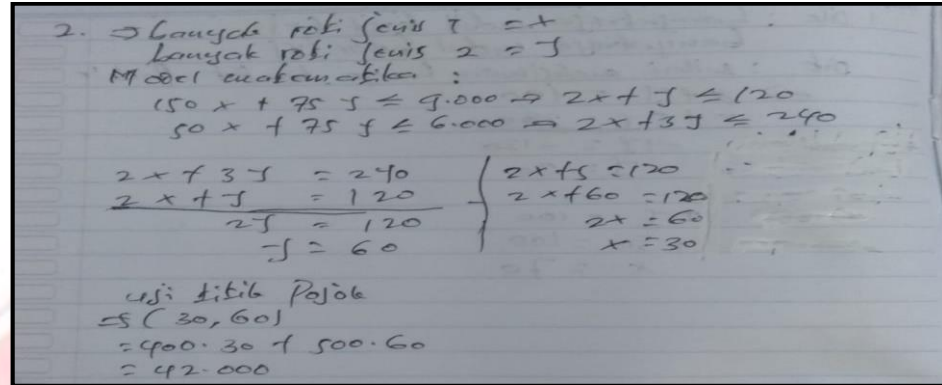 2. ⇒ Banyak roti jenis 1 = x
banyak roti jenis 2 = y
Model matematika :
150 x + 75 y ≤ 9.000 → 2x + y ≤ 120
50 x + 75 y ≤ 6.000 → 2x + 3y ≤ 240
2x + 3y = 240
2x + y = 120
2y = 120
y = 60
2x + y = 120
2x + 60 = 120
2x = 60
x = 30
uji titik Pojok
⇒ (30, 60)
= 400. 30 + 500. 60
= 42.000